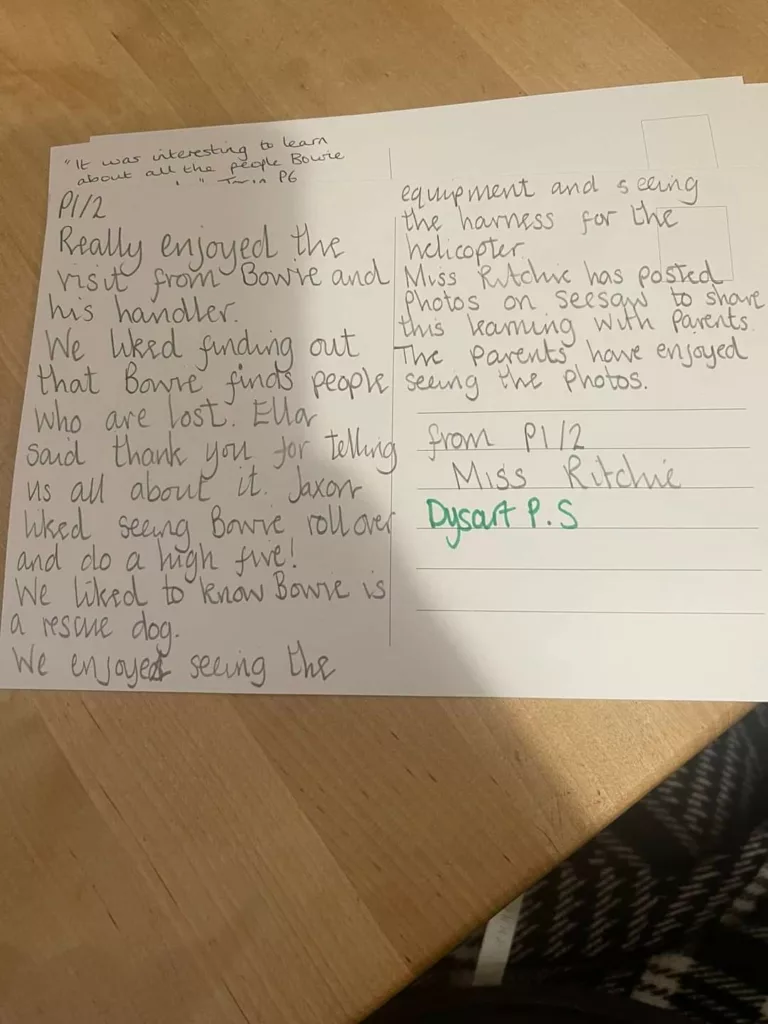 "It was interesting to learn
about all the people Bowie
" P6
P1/2
Really enjoyed the
visit from Bowie and
his handler.
We liked finding out
that Bowie finds people
who are lost. Ella
said thank you for telling
us all about it. Jaxon
liked seeing Bowie roll over
and do a high five!
We liked to know Bowie is
a rescue dog.
We enjoyed seeing the
equipment and seeing
the harness for the
helicopter
Miss Ritchie has posted
photos on seesaw to share
this learning with parents.
The parents have enjoyed
seeing the photos.
from P1/2
Miss Ritchie
Dysart P.S